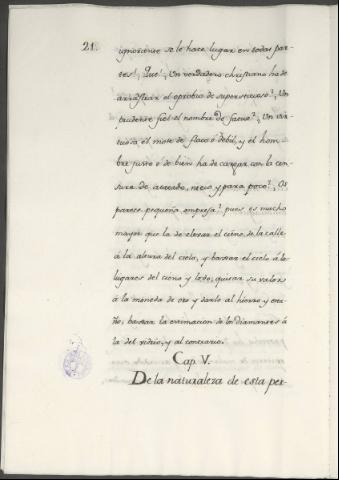 21.
ignorante se le hace lugar en todas par-
tes? Que! Un verdadero christiano ha de
arrastrar el oprobio de supersticioso? Un
prudente fiel el nombre de fatuo? Un vir-
tuoso, el mote de flaco ó debil, y el hom-
bre justo ó de bien ha de cargar con la cen-
sura de atacado, necio y para poco? Os
parece pequeña empresa? pues es mucho
mayor que la de elevar el cieno de la calle
á la altura del cielo, y baxar el cielo á los
lugares del cieno y lodo; quitar su valor
á la moneda de oro y darlo al hierro y esta-
ño; baxar la estimacion de los diamantes á
la del vidrio, y al contrario.
Cap. V.
De la naturaleza de esta per-